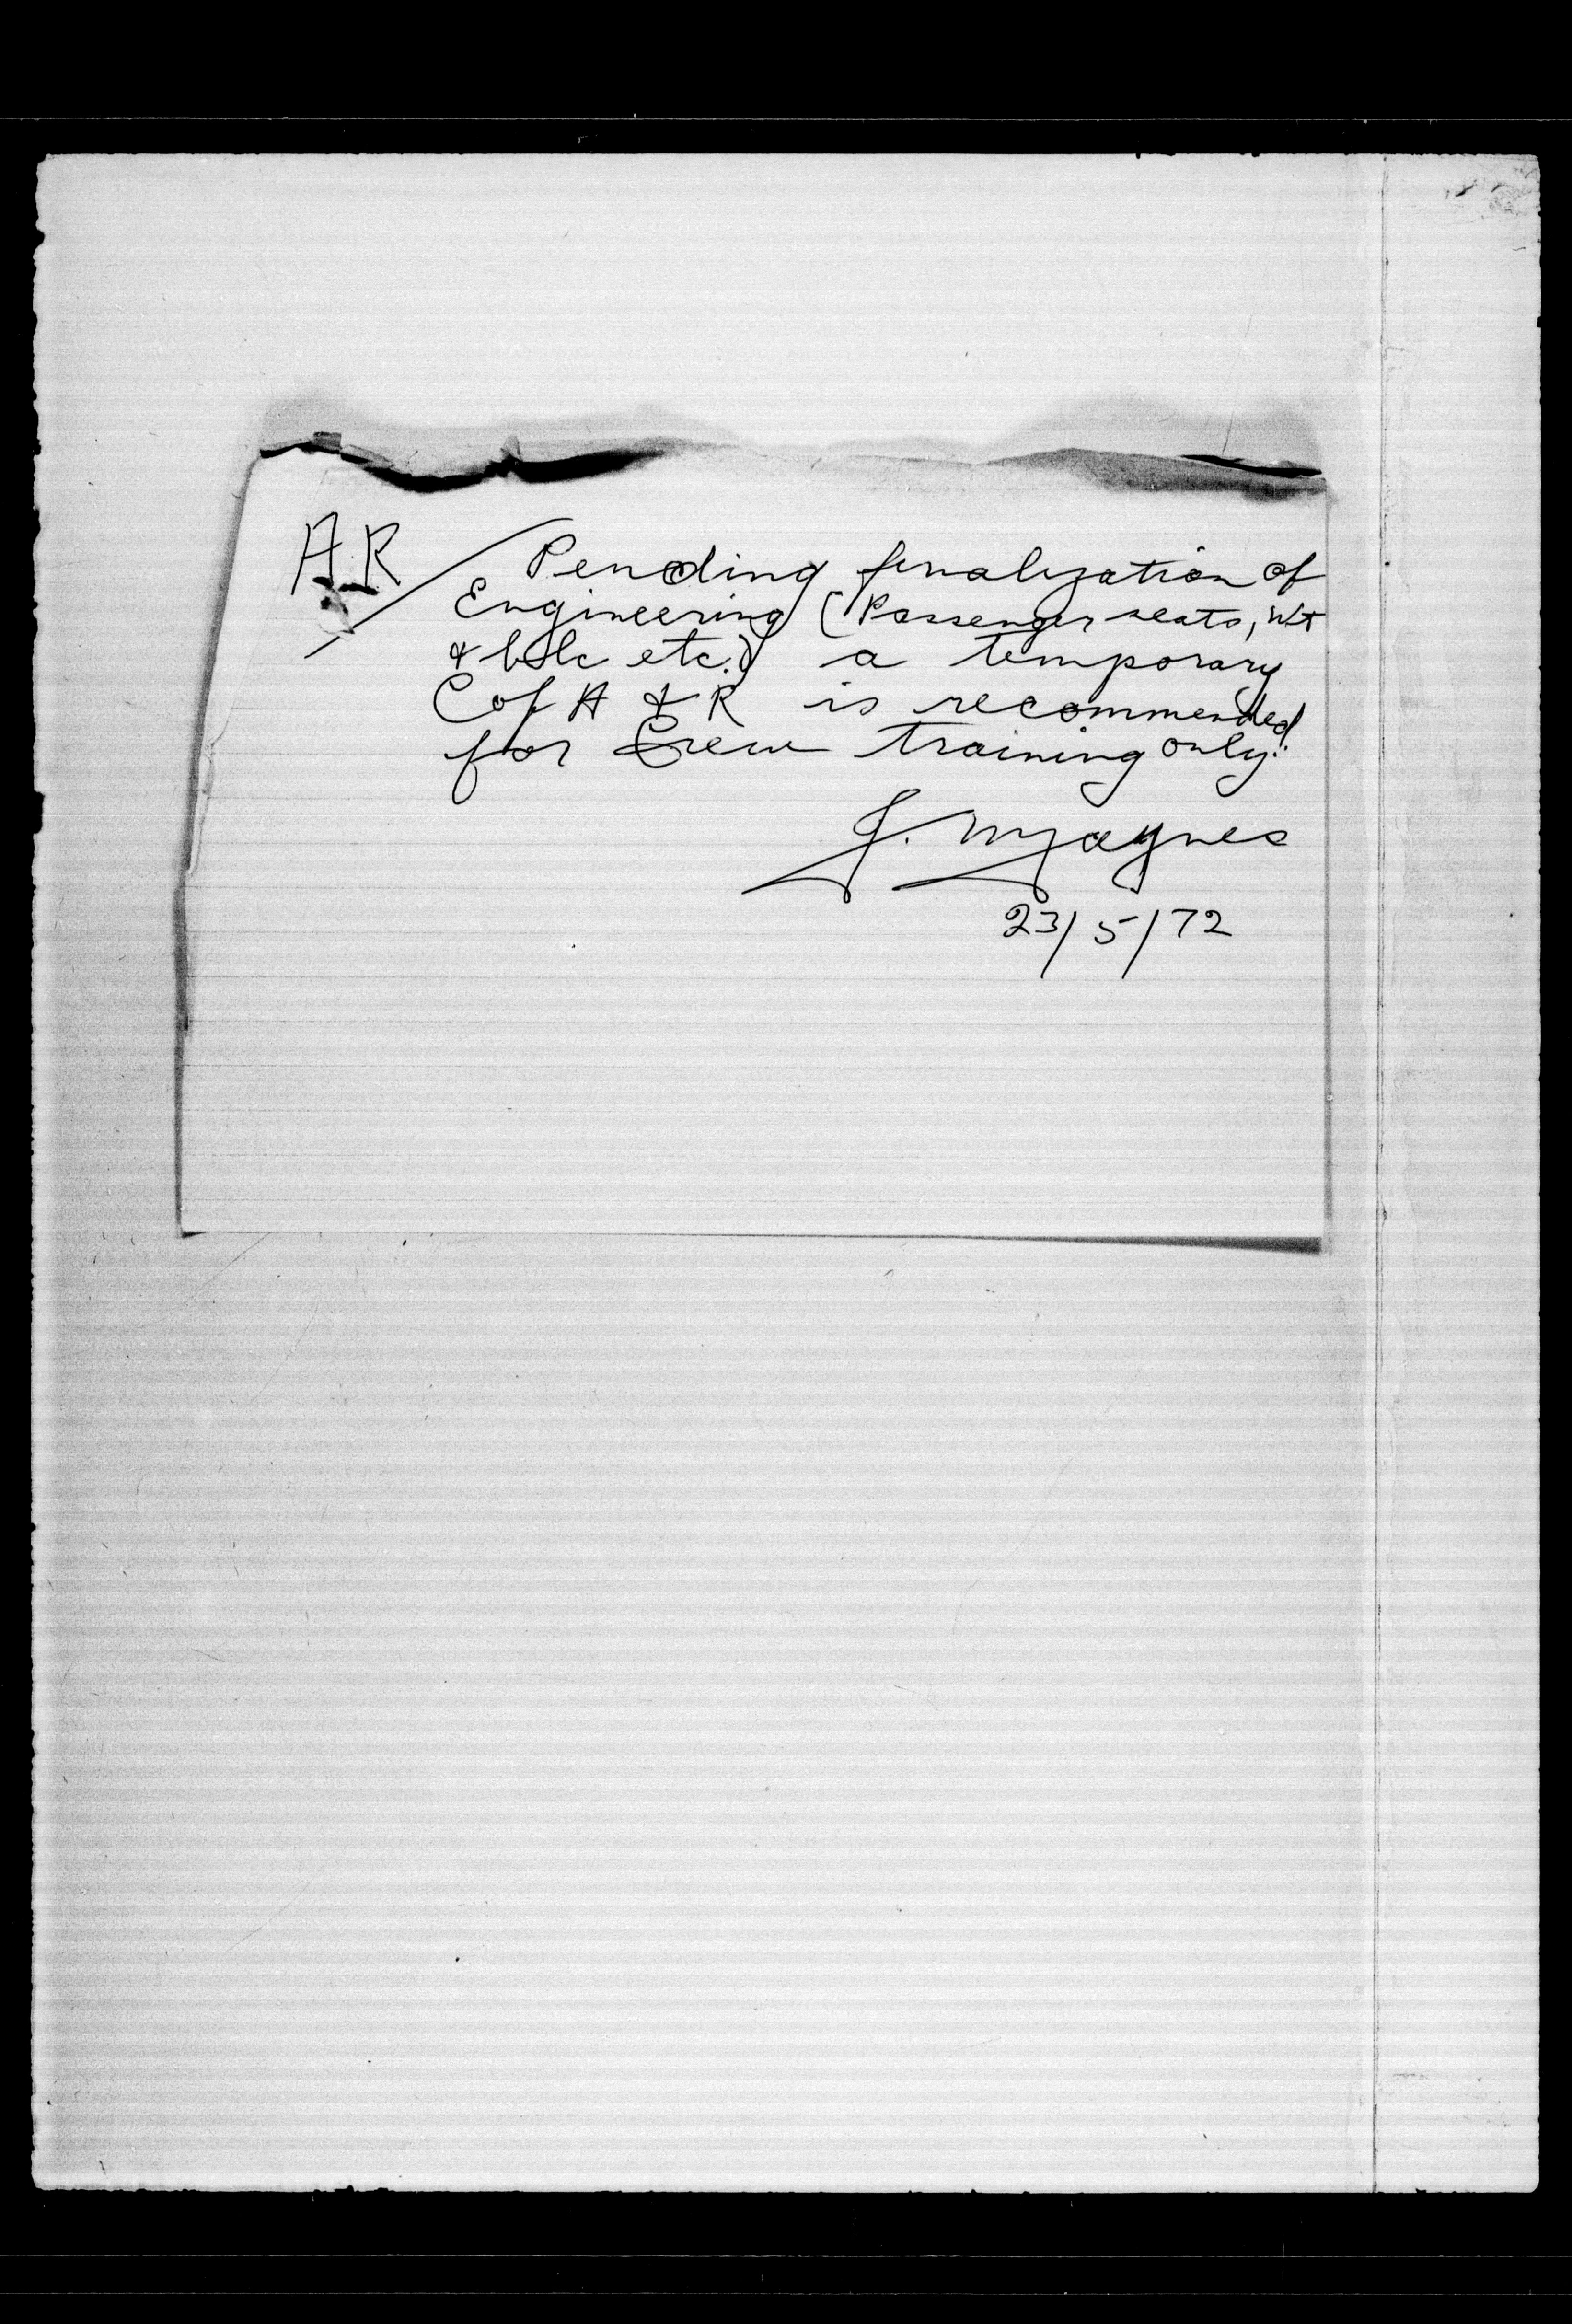 AR Pending finalization of
Engineering (Passenger seats, Wt
& blc etc.) a temporary
C of A & R is recommended
for Crew training only.
J. Magnes
23/5/72